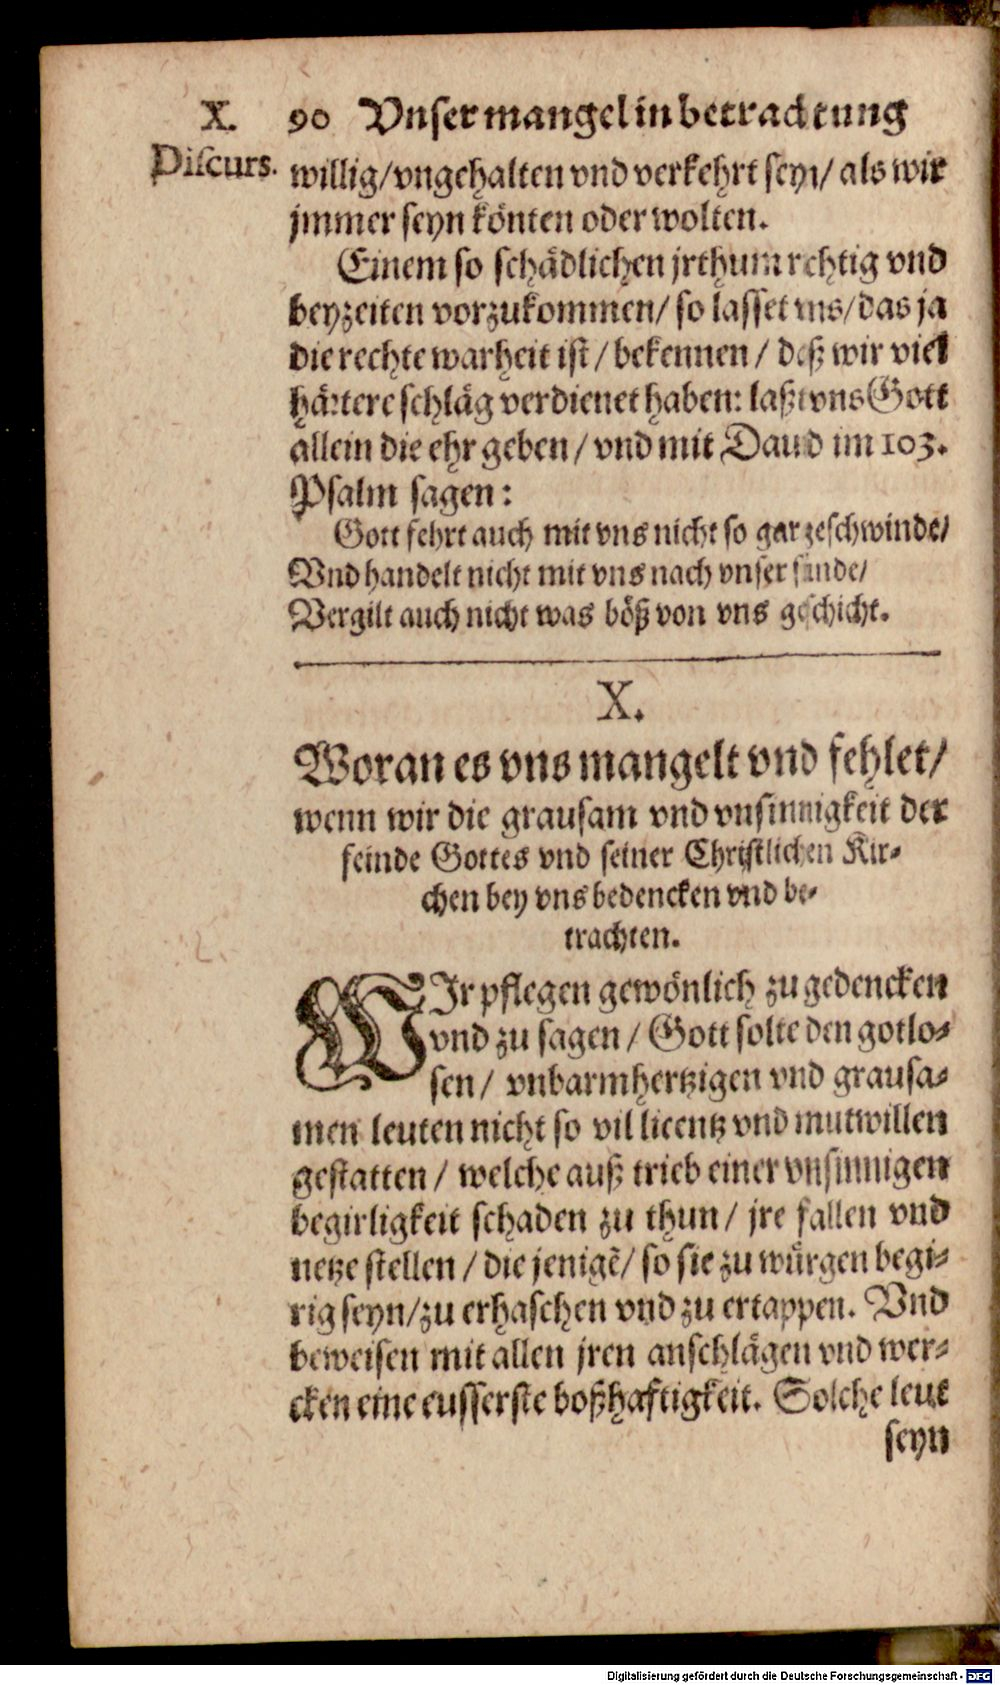 X. 90 Vnser mangel in betrachtung
Discurs.
willig/vngehalten vnd verkehrt seyn/ als wir
jmmer seyn könten oder wolten.
Einem so schädlichen jrthum rchtig vnd
beyzeiten vorzukommen/ so lasset vns/das ja
die rechte warheit ist/ bekennen/ deß wir viel
härtere schläg verdienet haben: laßt vns Gott
allein die ehr geben/ vnd mit Dauid im 103.
Psalm sagen:
Gott fehrt auch mit vns nicht so gar geschwinde/
Vnd handelt nicht mit vns nach vnser sünde/
Vergilt auch nicht was böß von vns geschicht.
X.
Woran es vns mangelt vnd fehlet/
wenn wir die grausam vnd vnsinnigkeit der
feinde Gottes vnd seiner Christlichen Kir-
chen bey vns bedencken vnd be-
trachten.
WJr pflegen gewönlich zu gedencken
vnd zu sagen/ Gott solte den gotlo-
sen/ vnbarmhertzigen vnd grausa-
men leuten nicht so vil licentz vnd mutwillen
gestatten/ welche auß trieb einer vnsinnigen
begirligkeit schaden zu thun/ jre fallen vnd
netze stellen/ die jenigẽ/ so sie zu würgen begi-
rig seyn/zu erhaschen vnd zu ertappen. Vnd
beweisen mit allen jren anschlägen vnd wer-
cken eine eusserste boßhaftigkeit. Solche leut
seyn
Digitalisierung gefördert durch die Deutsche Forschungsgemeinschaft - DFG